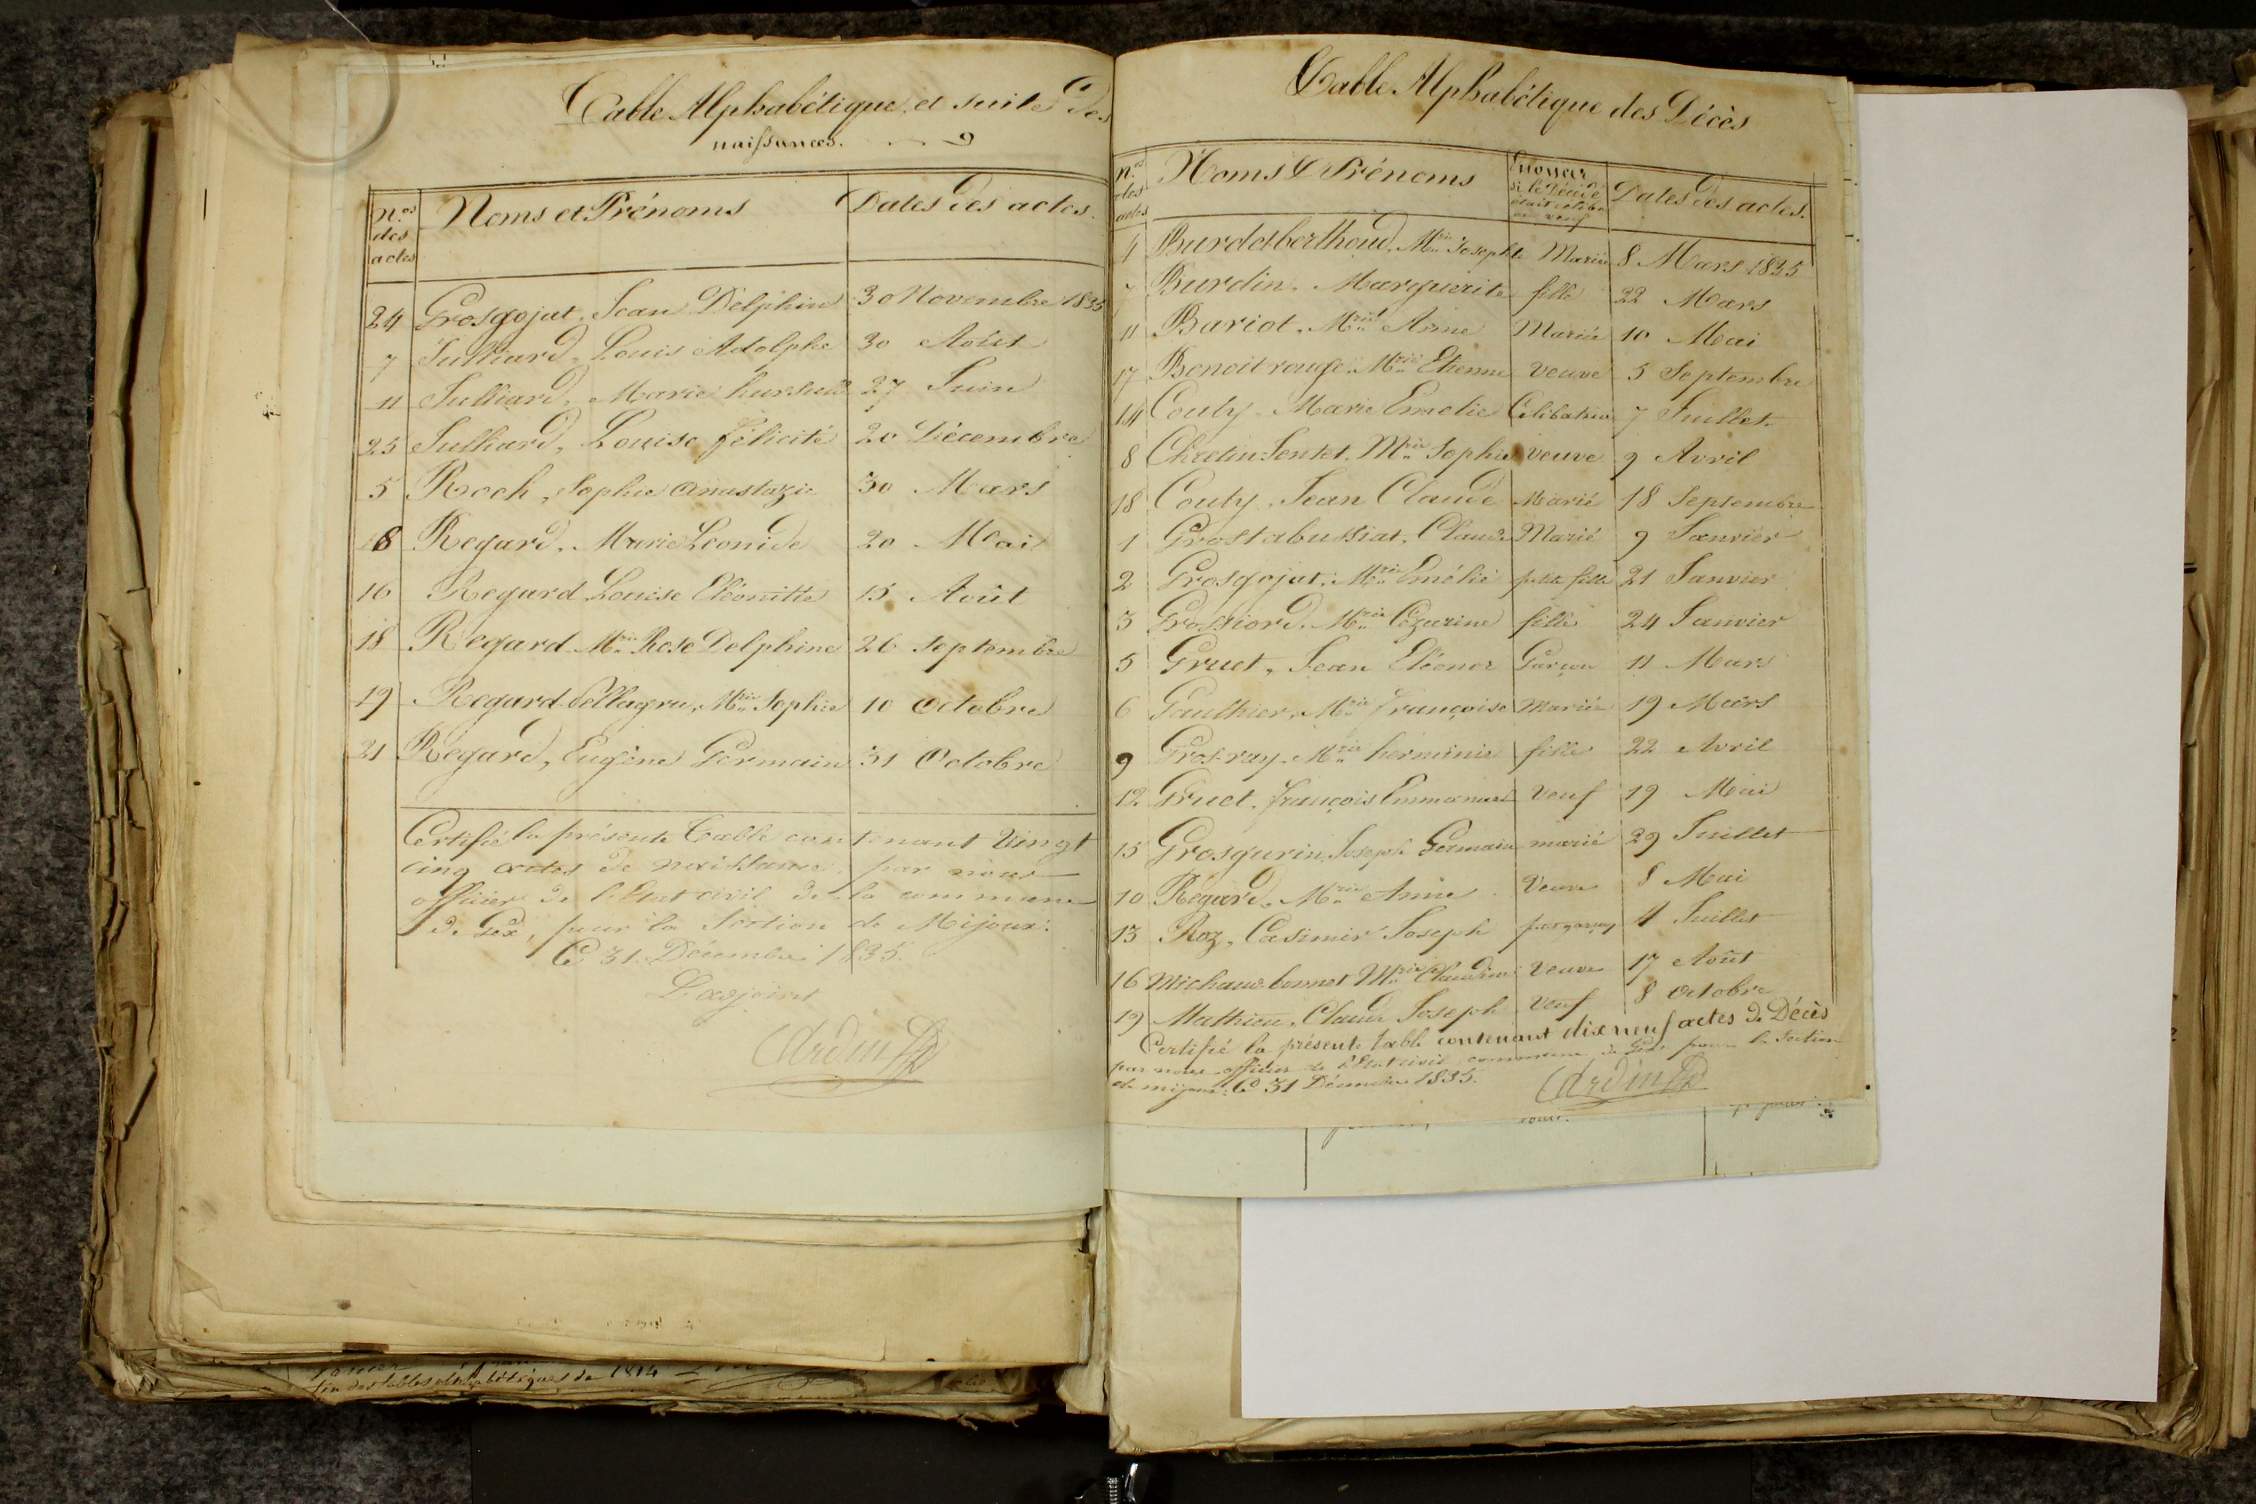 Table Alphabétique et suite des
naissances.
nos des actes Noms et Prénoms Dates des actes.
24 Grosgojat, Jean Délphin 30 Novembre 1835
7 Julliard, Louis Adolphe 30 Août
11 Julliard, Marie hursule 27 Juin
25 Julliard, Louise félicité 20 Décembre
5 Roch, Sophie Anastazie 30 Mars
8 Regard, Marie Léonide 20 Mai
16 Regard Louise Eléonitte 15 Août
18 Regard Mrie Rose Delphine 26 Septembre
19 Regard dellagru, Mrie Sophie 10 Octobre
21 Régard, Eugène Germain 31 Octobre
Certifié la présente Table contenant Vingt
cinq actes de naissance par nous
officier de l'Etat civil de la commune
de Gex, pour la Section de Mijoux.
Ce 31 Décembre 1835.
L'adjoint
Table Alphabétique des Décès
nos des actes Noms & Prénoms si le Décédé était Dates des actes.
4 Burdetberthoud, Mrie Josephte Mariée 8 Mars 1835
7 Burdin, Marguerite fille 22 Mars
11 Bariot, Mrie Anne Mariée 10 Mai
17 Benoit rouge, Mrie Etienne veuve 5 Septembre
14 Couty, Marie Emelie Célibataire 7 Juillet
8 Mrie Sophie veuve 9 Avril
18 Couty, Jean Claude Marié 18 Septembre
1 Grostabussiat, Claude Marié 9 Janvier
2 Grosgojat, Mrie Emélie petite fille 21 Janvier
3 Grossiord, Mrie Cézarine fille 24 Janvier
5 Gruet, Jean Eléonor Garçon 11 Mars
6 Gauthier, Mrie françoise Mariée 19 Mars
9 Grosray, Mrie herminie fille 22 Avril
12 Gruet, françois Emmanuel Veuf 19 Mai
15 Grosgurin, Joseph Germain marié 29 Juillet
10 Régard, Mrie Anne Veuve 8 Mai
13 Roz, Casimir Joseph 4 Juillet
16 Michaud bonnet Mrie Claudine Veuve 17 Août
19 Mathieu, Claude Joseph Veuf 8 Octobre
Certifié la présente table contenant dix neuf actes de Décès
par nous officier de l'Etat civil commune de Gex pour la Section
de mijoux. Ce 31 Décembre 1835.
fin des tables alphabétiques de 1814